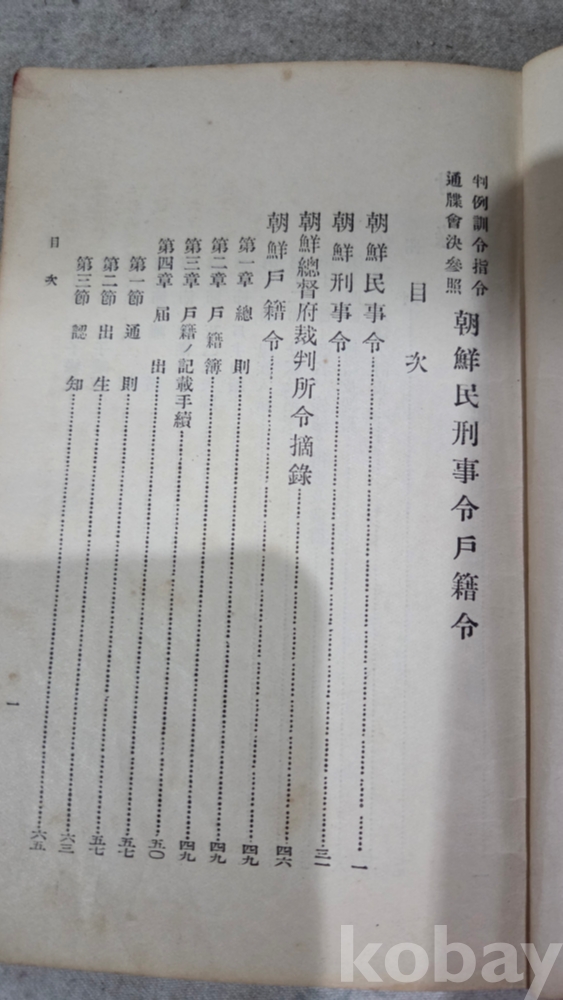 判例訓令指令
通牒會決參照
朝鮮民刑事令戶籍令
目次
朝鮮民事令……一
朝鮮刑事令……三一
朝鮮總督府裁判所令摘錄……四六
朝鮮戶籍令……四九
第一章 總則……四九
第二章 戶籍簿……四九
第三章 戶籍ノ記載手續……五〇
第四章 屆出……五七
第一節 通則……五七
第二節 出生……六三
第三節 認知……六五
目次
一
kobay